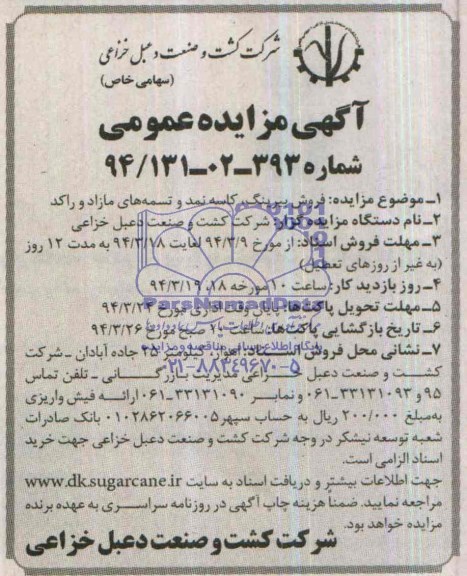 شرکت کشت و صنعت دعبل خزاعی
(سهامی خاص)
آگهی مزایده عمومی
شماره ۳۹۳-۰۲-۹۴/۱۳۱
۱- موضوع مزایده: فروش بیرینگ، کاسه نمد و تسمه‌های مازاد و راکد
۲- نام دستگاه مزایده گزار: شرکت کشت و صنعت دعبل خزاعی
۳- مهلت فروش اسناد: از مورخ ۹۴/۳/۹ لغایت ۹۴/۳/۱۸ به مدت ۱۲ روز
(به غیر از روزهای تعطیل)
۴- روز بازدید کار: ساعت ۱۰ مورخه ۱۸، ۹۴/۳/۱۹
۵- مهلت تحویل پاکت‌ها: پایان وقت اداری مورخ ۹۴/۳/۲۴
۶- تاریخ بازگشایی پاکت‌ها: صبح مورخ ۹۴/۳/۲۶
۷- نشانی محل فروش اسناد: اهواز، کیلومتر ۲۵ جاده آبادان - شرکت
کشت و صنعت دعبل خزاعی مدیریت بازرگانی - تلفن تماس
۹۵ و ۳۳۱۳۱۰۹۳-۰۶۱ و نمابر ۳۳۱۳۱۰۹۰-۰۶۱ ارائه فیش واریزی
به‌مبلغ ۲۰۰/۰۰۰ ریال به حساب سپهر ۰۱۰۲۸۶۲۰۶۶۰۰۵ بانک صادرات
شعبه توسعه نیشکر در وجه شرکت کشت و صنعت دعبل خزاعی جهت خرید
اسناد الزامی است.
جهت اطلاعات بیشتر و دریافت اسناد به سایت www.dk.sugarcane.ir
مراجعه نمایید. ضمناً هزینه چاپ آگهی در روزنامه سراسری به عهده برنده
مزایده خواهد بود.
شرکت کشت و صنعت دعبل خزاعی
ParsNamadData
پایگاه اطلاع رسانی مناقصه و مزایده
۰۲۱-۸۸۳۴۹۶۷۰-۵